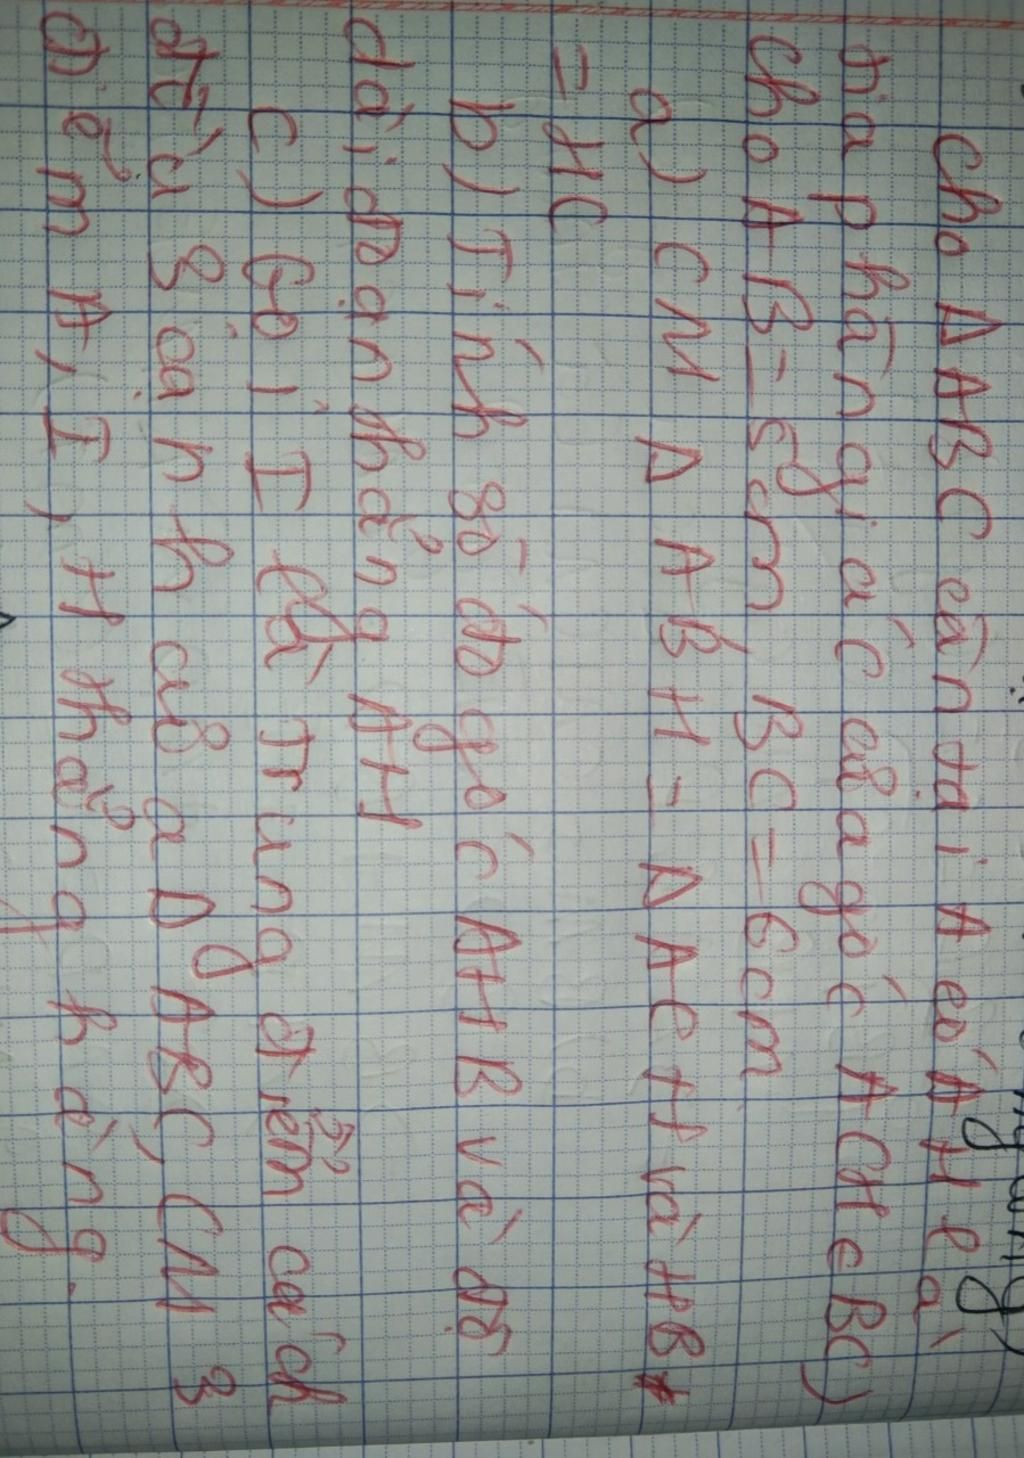 Cho Δ ABC cân tại A có AH là
tia phân giác của góc A (H∈BC)
Cho AB = 5cm, BC = 6cm
a) CM Δ ABH = Δ ACH và HB
= HC
b) Tính số đo góc AHB và độ
dài đoạn thẳng AH
c) Gọi I là trung điểm cách
đều 3 cạnh của Δ ABC, CM 3
điểm A, I, H thẳng hàng.